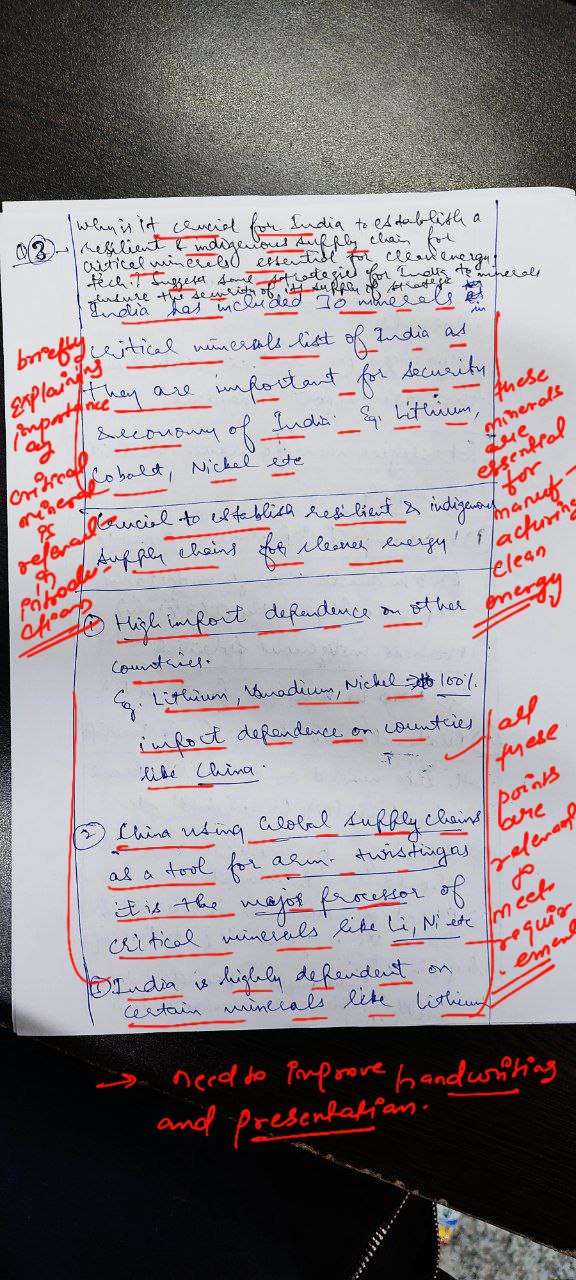 Q3
Why is it crucial for India to establish a
resilient & indigenous supply chain for
critical minerals essential for clean energy
tech? Suggest some strategies for India to
ensure the security of its supply of strategic minerals
India has included 30 minerals in
critical minerals list of India as
they are important for security
& economy of India. Eg. Lithium,
Cobalt, Nickel etc
briefly
explaining
importance
of
critical
mineral
is
relevant
in
introdu-
ctions
these
minerals
are
essential
for
manuf-
acturing
clean
energy
Crucial to establish resilient & indigenous
supply chains for cleaner energy
① High import dependence on other
countries.
Eg. Lithium, Vanadium, Nickel 100%
import dependence on countries
like China.
② China using Global supply chains
as a tool for arm-twisting as
it is the major processor of
critical minerals like Li, Ni etc
③ India is highly dependent on
certain minerals like Lithium
all
these
points
are
relevant
to
meet
requir
ement
→ need to improve handwriting
and presentation.